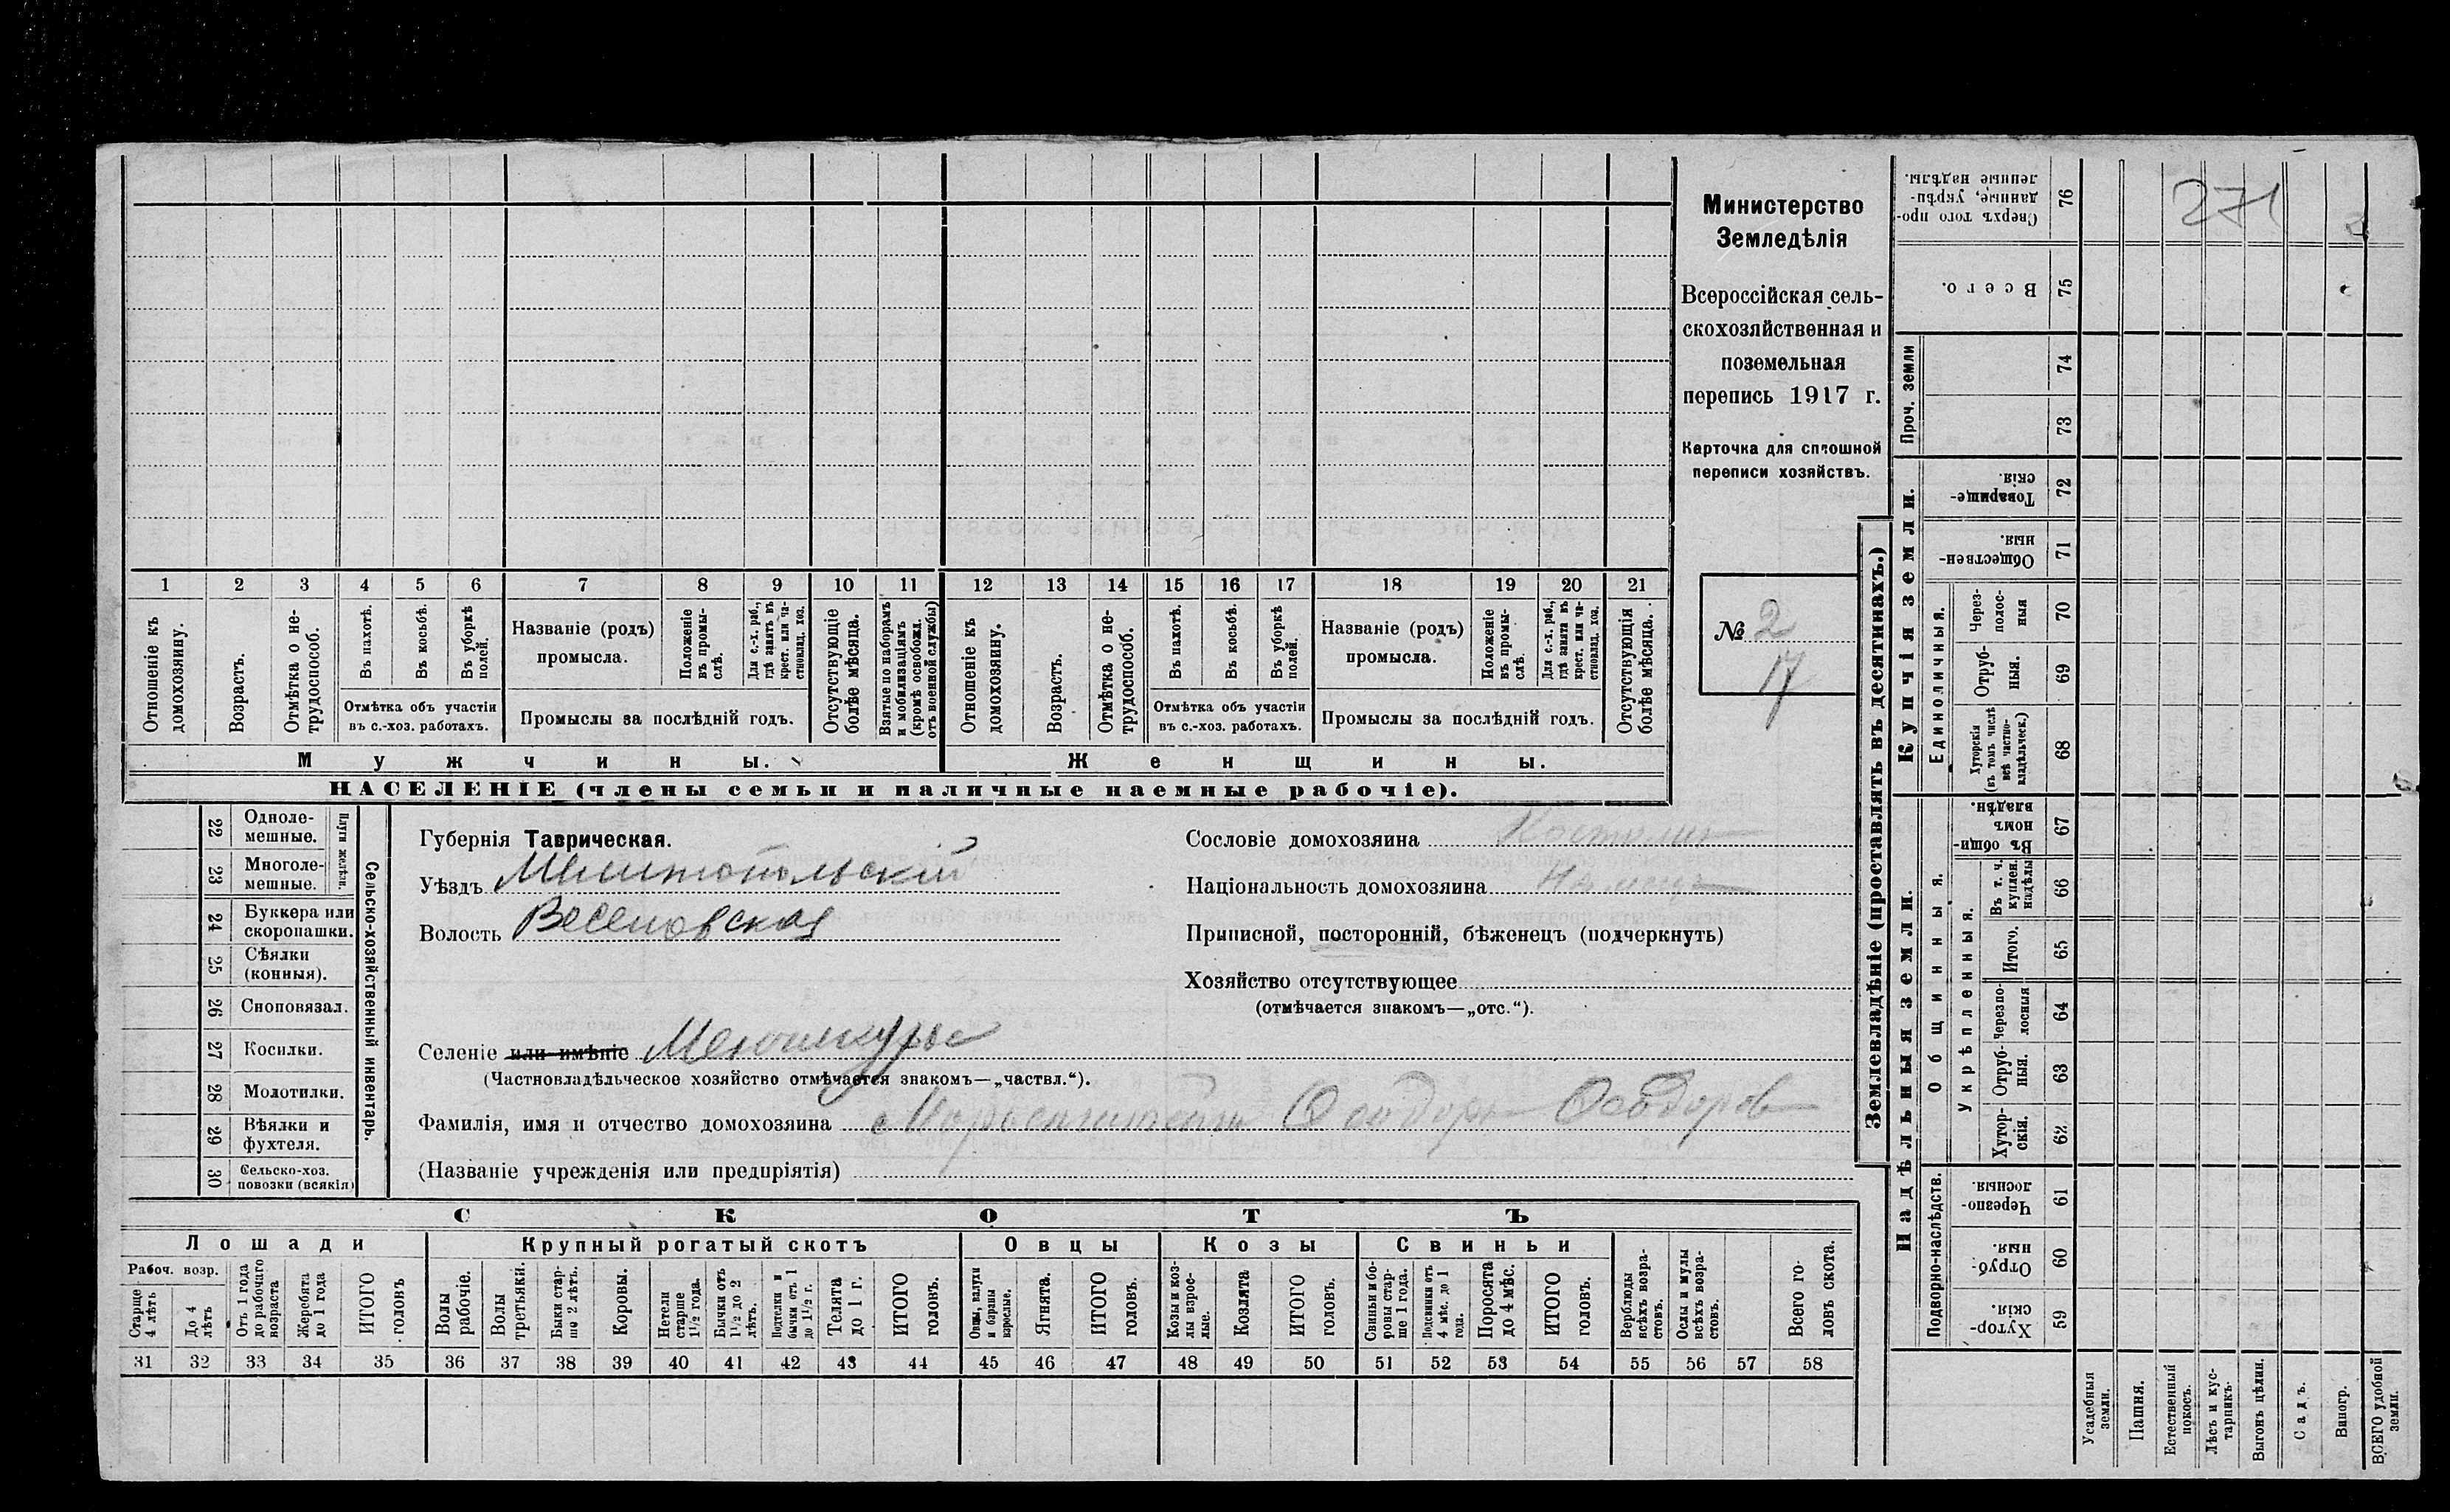 271
76
Сверхъ того про-
данные, укрѣп-
ленные надѣлы.
75
Всего.
Министерство
Земледѣлія
Всероссійская сель-
скохозяйственная и
поземельная
перепись 1917 г.
Карточка для сплошной
переписи хозяйствъ.
№ 2
17
1 2 3 4 5 6 7 8 9 10 11 12 13 14 15 16 17 18 19 20 21
Отношеніе къ
домохозяину.
Возрастъ.
Отмѣтка о не-
трудоспособ.
Въ пахотѣ.
Въ косьбѣ.
Въ уборкѣ
полей.
Отмѣтка объ участіи
въ с.-хоз. работахъ.
Названіе (родъ)
промысла.
Положеніе
въ промы-
слѣ.
Для с.-х. раб.,
гдѣ занятъ въ
крест. или ча-
стновлад. хоз.
Промыслы за послѣдній годъ.
Отсутствующіе
болѣе мѣсяца.
Взятые по наборамъ
и мобилизаціямъ
(кромѣ освобожд.
отъ военной службы)
Отношеніе къ
домохозяину.
Возрастъ.
Отмѣтка о не-
трудоспособ.
Въ пахотѣ.
Въ косьбѣ.
Въ уборкѣ
полей.
Отмѣтка объ участіи
въ с.-хоз. работахъ.
Названіе (родъ)
промысла.
Положеніе
въ промы-
слѣ.
Для с.-х. раб.,
гдѣ занята въ
крест. или ча-
стновлад. хоз.
Промыслы за послѣдній годъ.
Отсутствующія
болѣе мѣсяца.
Мужчины.
Женщины.
НАСЕЛЕНІЕ (члены семьи и наличные наемные рабочіе).
22 Одноле-
мешные.
23 Многоле-
мешные.
Плуги желѣзн.
24 Буккера или
скоропашки.
25 Сѣялки
(конныя).
26 Сноповязал.
27 Косилки.
28 Молотилки.
29 Вѣялки и
фухтеля.
30 Сельско-хоз.
повозки (всякія)
Сельско-хозяйственный инвентарь.
Губернія Таврическая.
Уѣздъ Мелитопольскій
Волость Веселовская
Селеніе или имѣніе
(Частновладѣльческое хозяйство отмѣчается знакомъ—„частвл.“).
Фамилія, имя и отчество домохозяина Ѳеодоръ Ѳеодоров
(Названіе учрежденія или предпріятія)
Сословіе домохозяина
Національность домохозяина Нѣмецъ
Приписной, посторонній, бѣженецъ (подчеркнуть)
Хозяйство отсутствующее
(отмѣчается знакомъ—„отс.“).
СКОТЪ
Лошади
Рабоч. возр.
Старше
4 лѣтъ
До 4
лѣтъ
Отъ 1 года
до рабочаго
возраста
Жеребята
до 1 года
ИТОГО
головъ
Крупный рогатый скотъ
Волы
рабочіе.
Волы
третьяки.
Быки стар-
ше 2 лѣтъ.
Коровы.
Нетели
старше
1½ года.
Бычки отъ
1½ до 2
лѣтъ.
Подтелки и
бычки отъ 1
до 1½ г.
Телята
до 1 г.
ИТОГО
головъ.
Овцы
Овцы, валухи
и бараны
взрослые.
Ягнята.
ИТОГО
головъ.
Козы
Козы и коз-
лы взрос-
лые.
Козлята
ИТОГО
головъ.
Свиньи
Свиньи и бо-
ровы стар-
ше 1 года.
Подсвинки отъ
4 мѣс. до 1
года.
Поросята
до 4 мѣс.
ИТОГО
головъ.
Верблюды
всѣхъ возра-
стовъ.
Ослы и мулы
всѣхъ возра-
стовъ.
Всего го-
ловъ скота.
31 32 33 34 35 36 37 38 39 40 41 42 43 44 45 46 47 48 49 50 51 52 53 54 55 56 57 58
Землевладѣніе (проставлять въ десятинахъ.)
Проч. земли
74
73
Купчія земли.
Товарище-
скія
72
Обществен-
ныя.
71
Единоличныя.
Через-
полос-
ныя
70
Отруб-
ныя.
69
Хуторскія
(въ томъ числѣ
всѣ частно-
владѣльческ.)
68
Надѣльныя земли.
Общинныя.
Въ общи-
номъ
владѣн.
67
Укрѣпленныя.
Въ т. ч.
куплен.
надѣлы
66
Итого.
65
Черезпо-
лосныя
64
Отруб-
ныя.
63
Хутор-
скія.
62
Подворно-наслѣдств.
Черезпо-
лосныя.
61
Отруб-
ныя.
60
Хутор-
скія.
59
Усадебныя
земли.
Пашня.
Естественный
покосъ.
Лѣсъ и кус-
тарникъ.
Выгонъ цѣлин.
Садъ.
Виногр.
ВСЕГО удобной
земли.